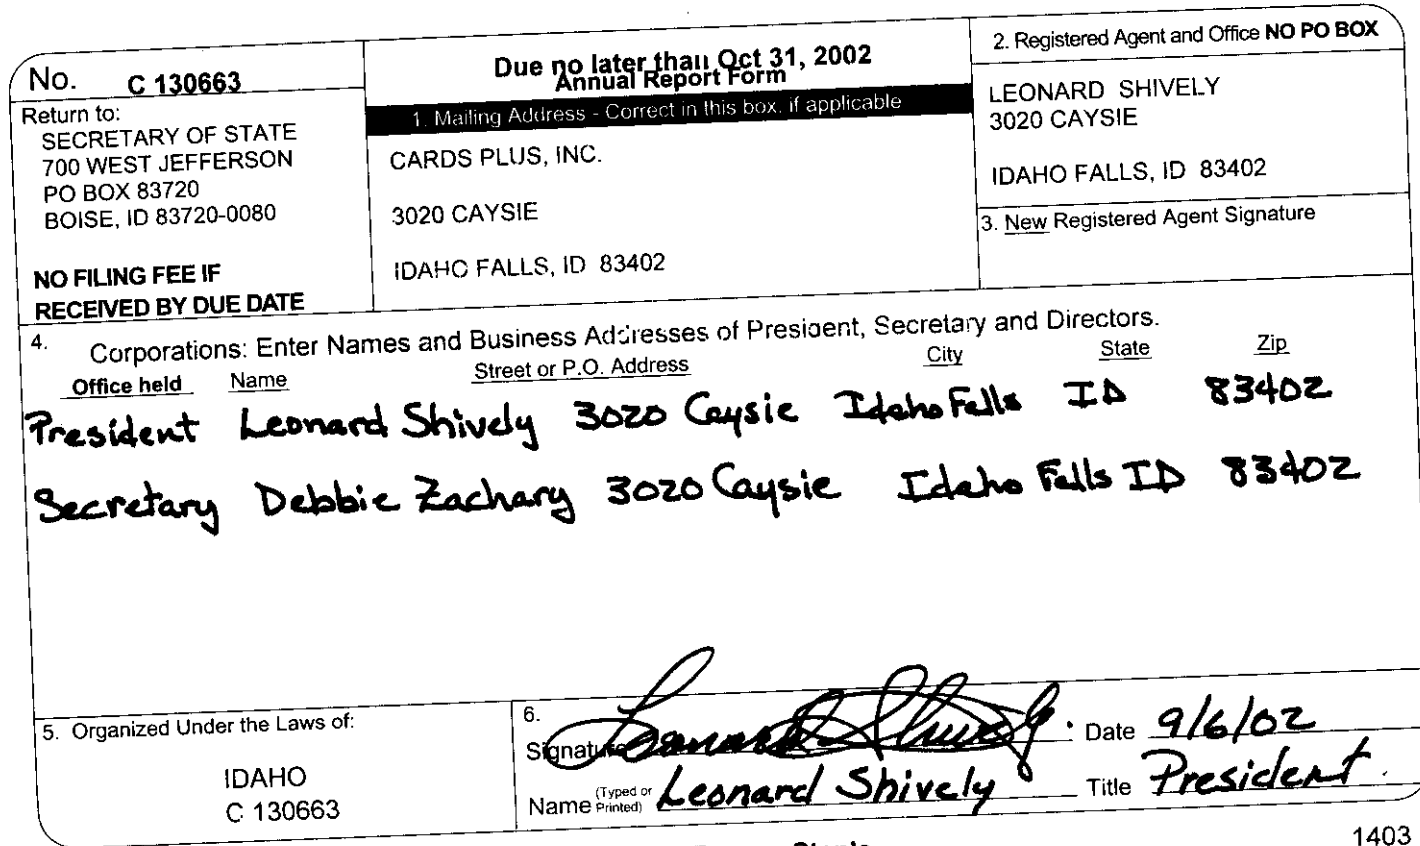 No. C 130663
Return to:
SECRETARY OF STATE
700 WEST JEFFERSON
PO BOX 83720
BOISE, ID 83720-0080
NO FILING FEE IF
RECEIVED BY DUE DATE
Due no later than Oct 31, 2002
Annual Report Form
1. Mailing Address - Correct in this box, if applicable
CARDS PLUS, INC.
3020 CAYSIE
IDAHO FALLS, ID 83402
2. Registered Agent and Office NO PO BOX
LEONARD SHIVELY
3020 CAYSIE
IDAHO FALLS, ID 83402
3. New Registered Agent Signature
4. Corporations: Enter Names and Business Addresses of President, Secretary and Directors.
Office held Name Street or P.O. Address City State Zip
President Leonard Shively 3020 Caysie Idaho Falls ID 83402
Secretary Debbie Zachary 3020 Caysie Idaho Falls ID 83402
5. Organized Under the Laws of:
IDAHO
C 130663
6.
Signature Leonard Shively Date 9/6/02
Name (Typed or Printed) Leonard Shively Title President.
1403